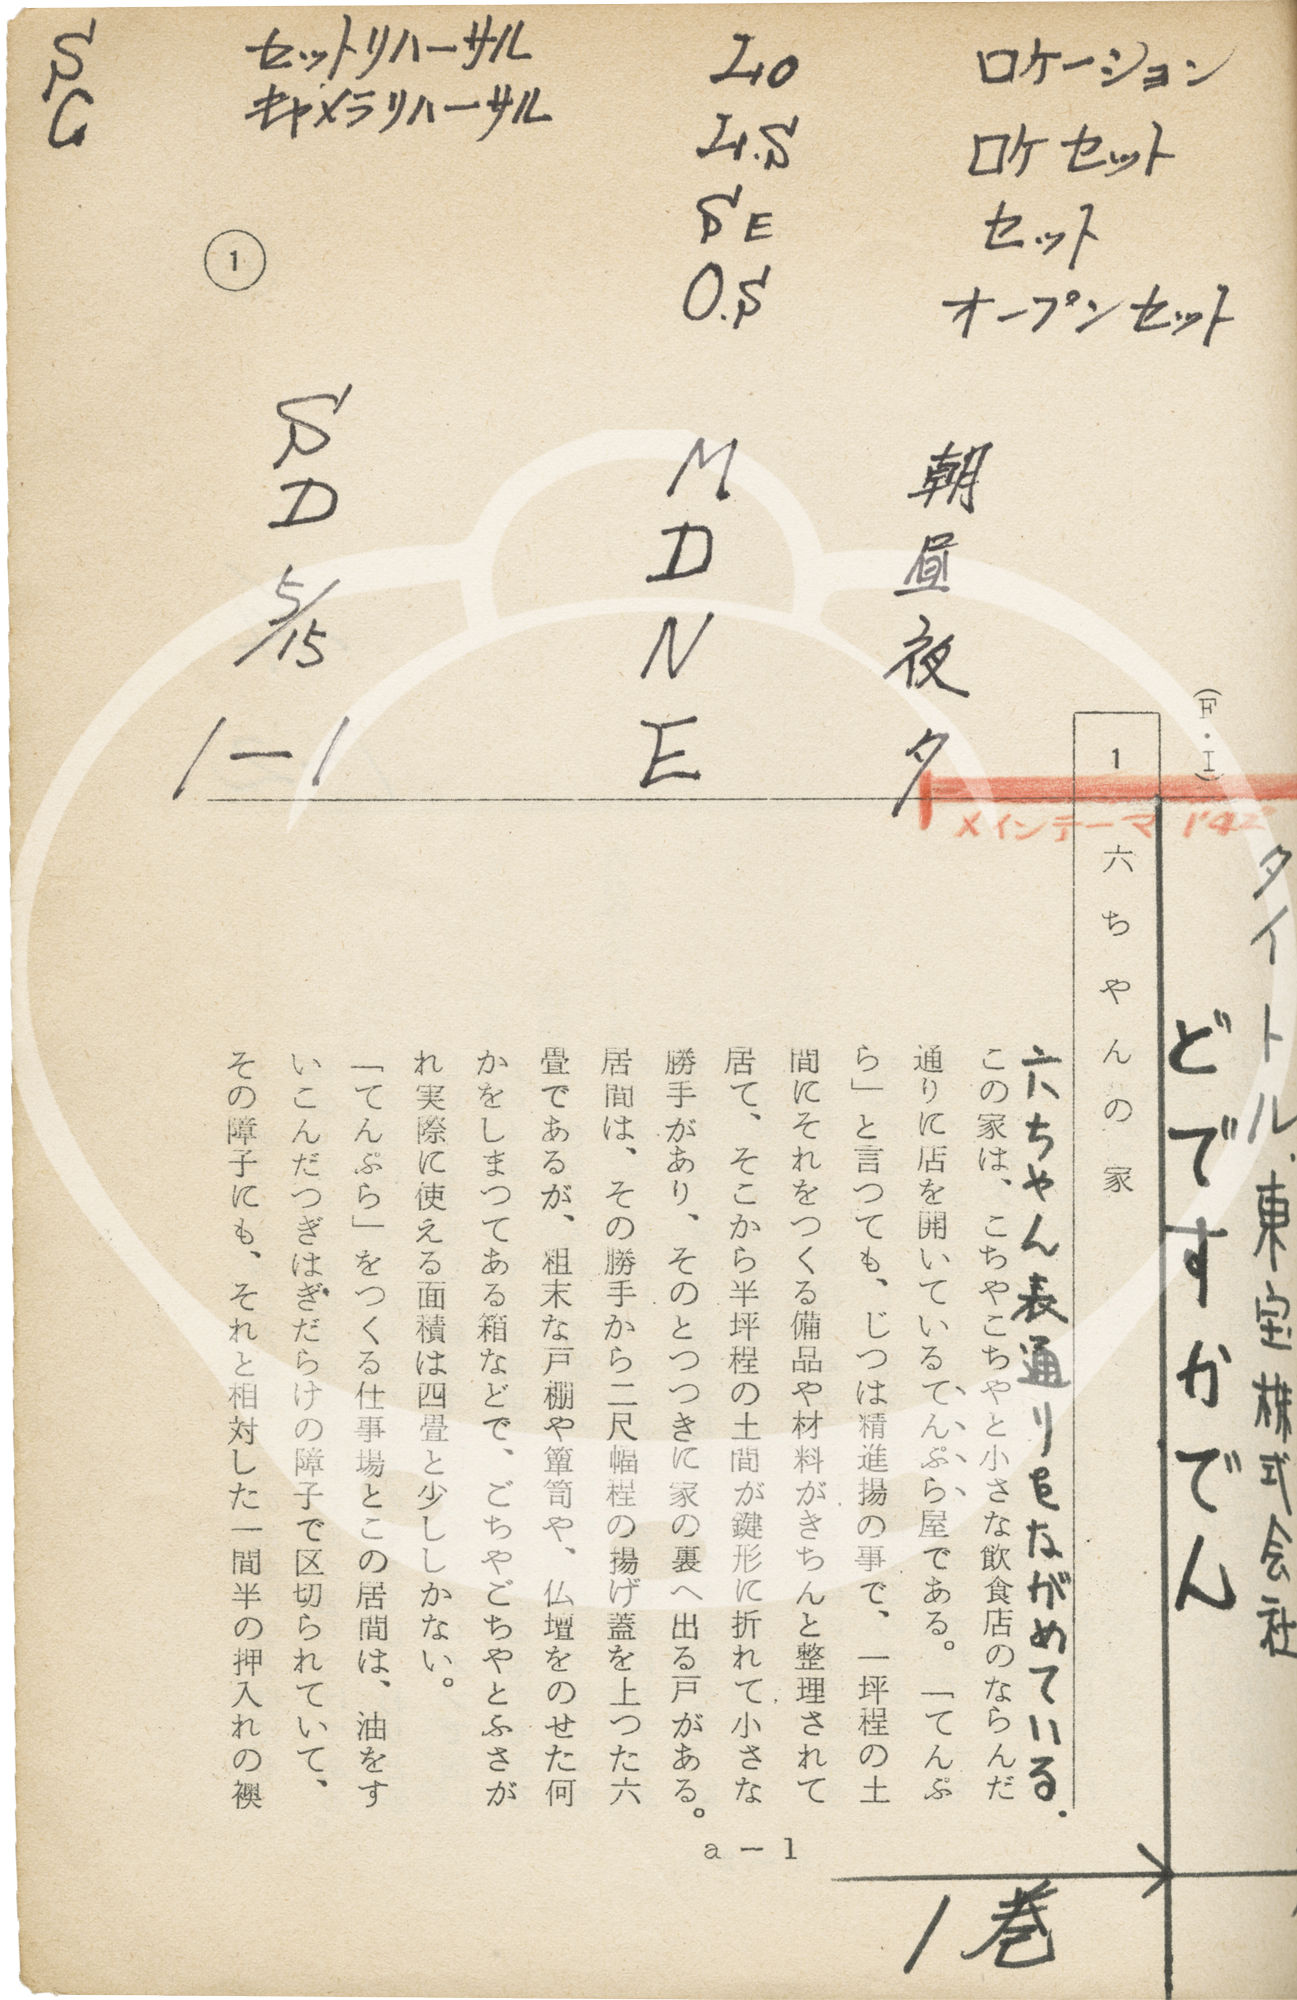 S セットリハーサル
C キャメラリハーサル
LO ロケーション
L.S ロケセット
SE セット
O.S オープンセット
1
朝 昼 夜 夕
M D N E
S D 5/15 1-1
(F・I)
メインテーマ 1'42"
タイトル.東宝株式会社
どですかでん
1 六ちゃんの家
六ちゃん表通りをながめている.
この家は、こちやこちやと小さな飲食店のならんだ
通りに店を開いているてんぷら屋である。「てんぷ
ら」と言つても、じつは精進揚の事で、一坪程の土
間にそれをつくる備品や材料がきちんと整理されて
居て、そこから半坪程の土間が鍵形に折れて小さな
勝手があり、そのとつつきに家の裏へ出る戸がある。
居間は、その勝手から二尺幅程の揚げ蓋を上つた六
畳であるが、粗末な戸棚や簞笥や、仏壇をのせた何
かをしまつてある箱などで、ごちやごちやとふさが
れ実際に使える面積は四畳と少ししかない。
「てんぷら」をつくる仕事場とこの居間は、油をす
いこんだつぎはぎだらけの障子で区切られていて、
その障子にも、それと相対した一間半の押入れの襖
a-1
1巻